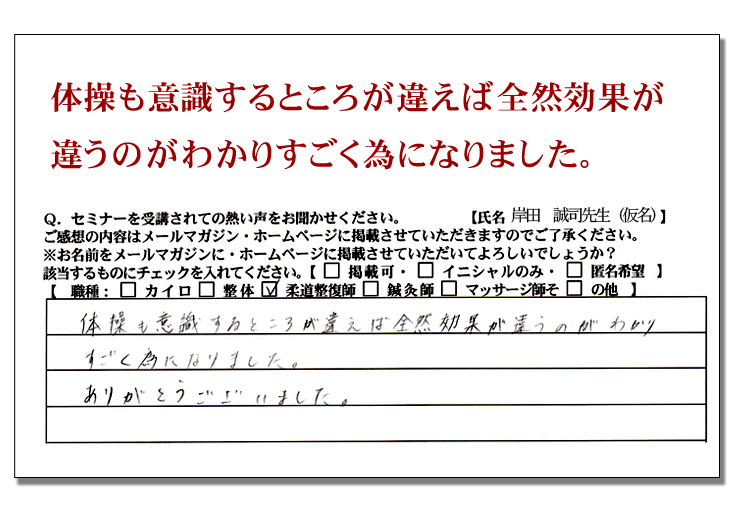 体操も意識するところが違えば全然効果が
違うのがわかりすごく為になりました。
Q. セミナーを受講されての熱い声をお聞かせください。 【氏名 岸田 誠司先生（仮名）】
ご感想の内容はメールマガジン・ホームページに掲載させていただきますのでご了承ください。
※お名前をメールマガジンに・ホームページに掲載させていただいてよろしいでしょうか？
該当するものにチェックを入れてください。【 □ 掲載可・ □ イニシャルのみ・ □ 匿名希望 】
【 職種： □ カイロ □ 整体 ☑ 柔道整復師 □ 鍼灸師 □ マッサージ師そ □ の他 】
体操も意識するところが違えば全然効果が違うのがわかり
すごく為になりました。
ありがとうございました。